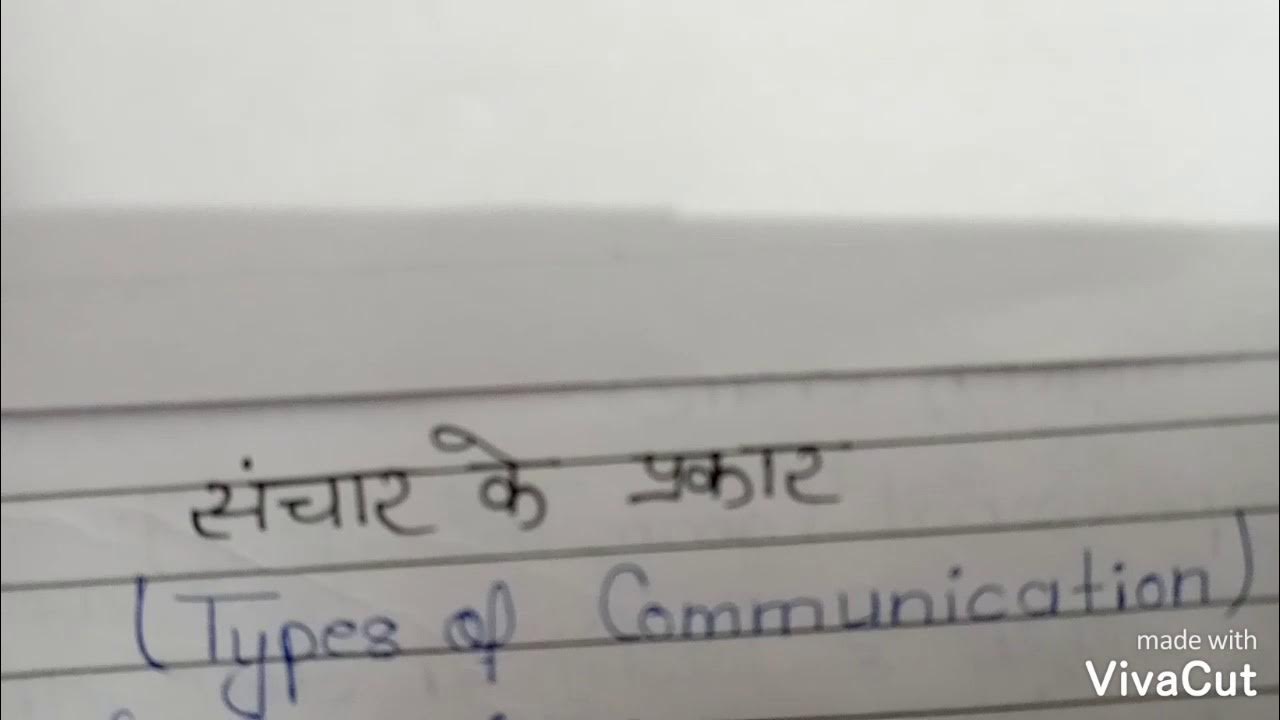 संचार के प्रकार
(Types of Communication)
made with
VivaCut